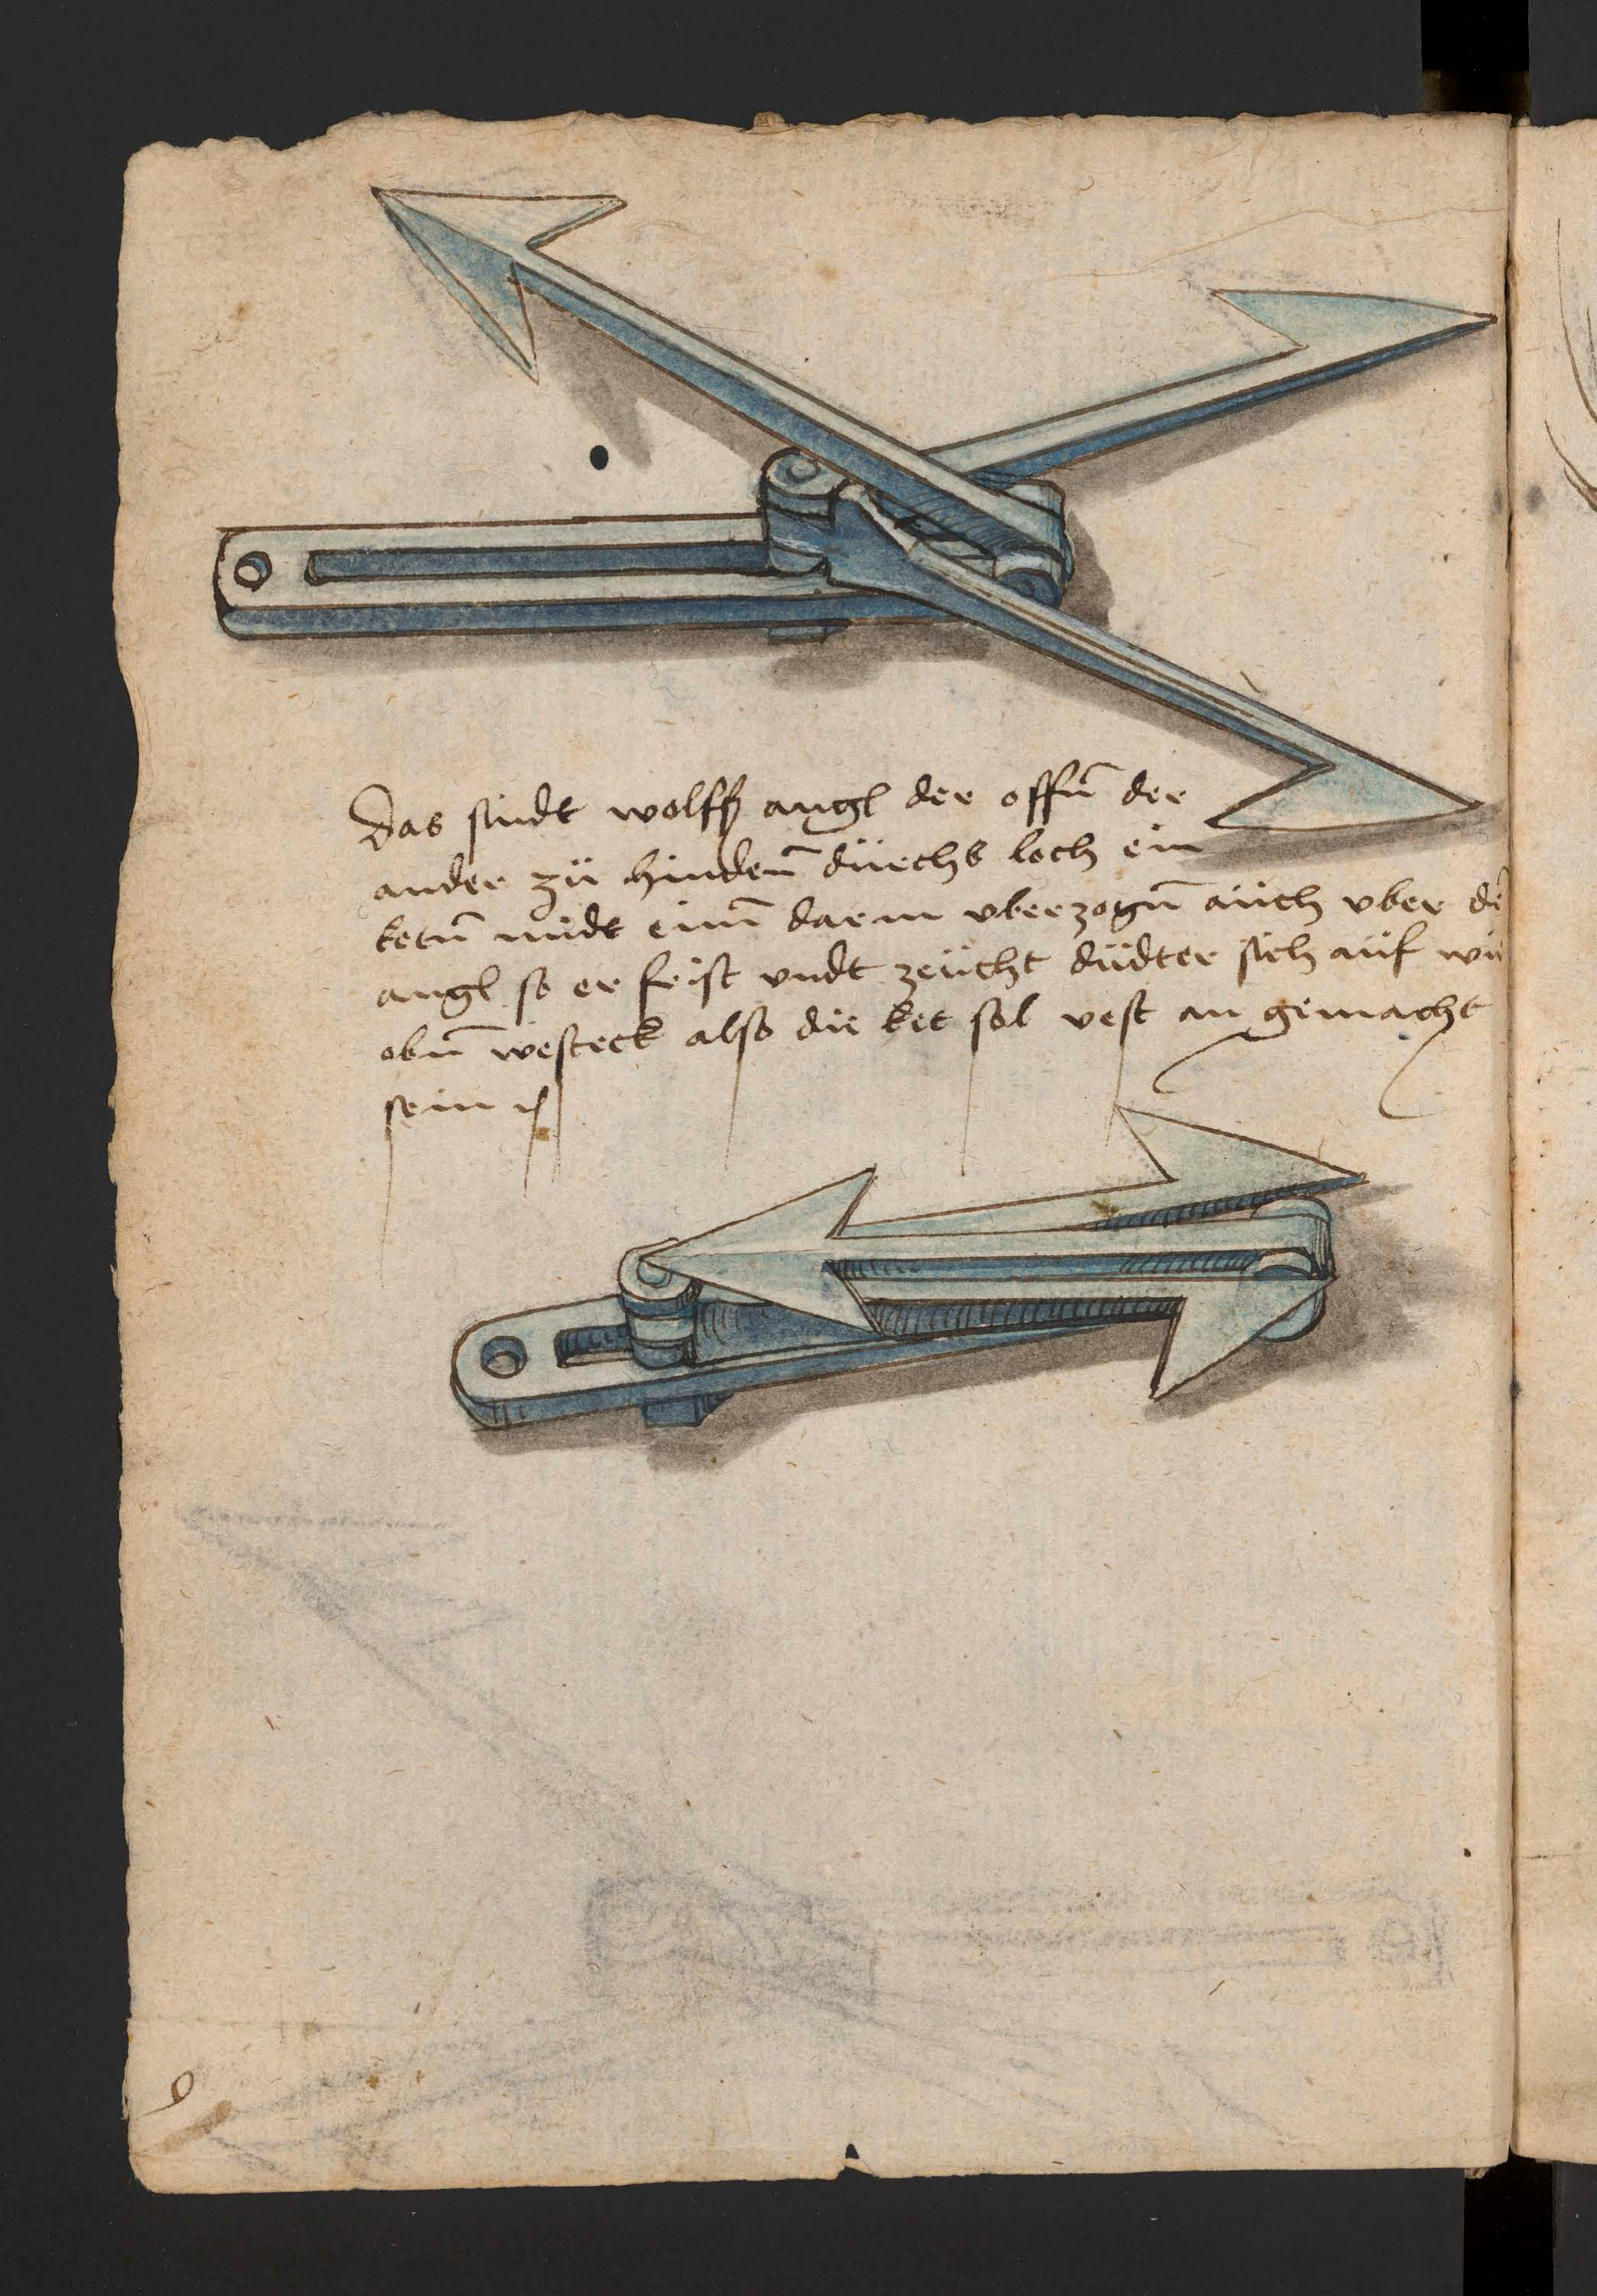 Das sindt wolffß angl der offn̄ der
ander zü hinden̄ dürchs loch ein
ketn̄ midt eim̄ darm vberzogn̄ aüch vber dē
angl so er frist vndt zeücht düdter sich aüf wie
obn̄ also die ket sol vest an gemacht
sein
9